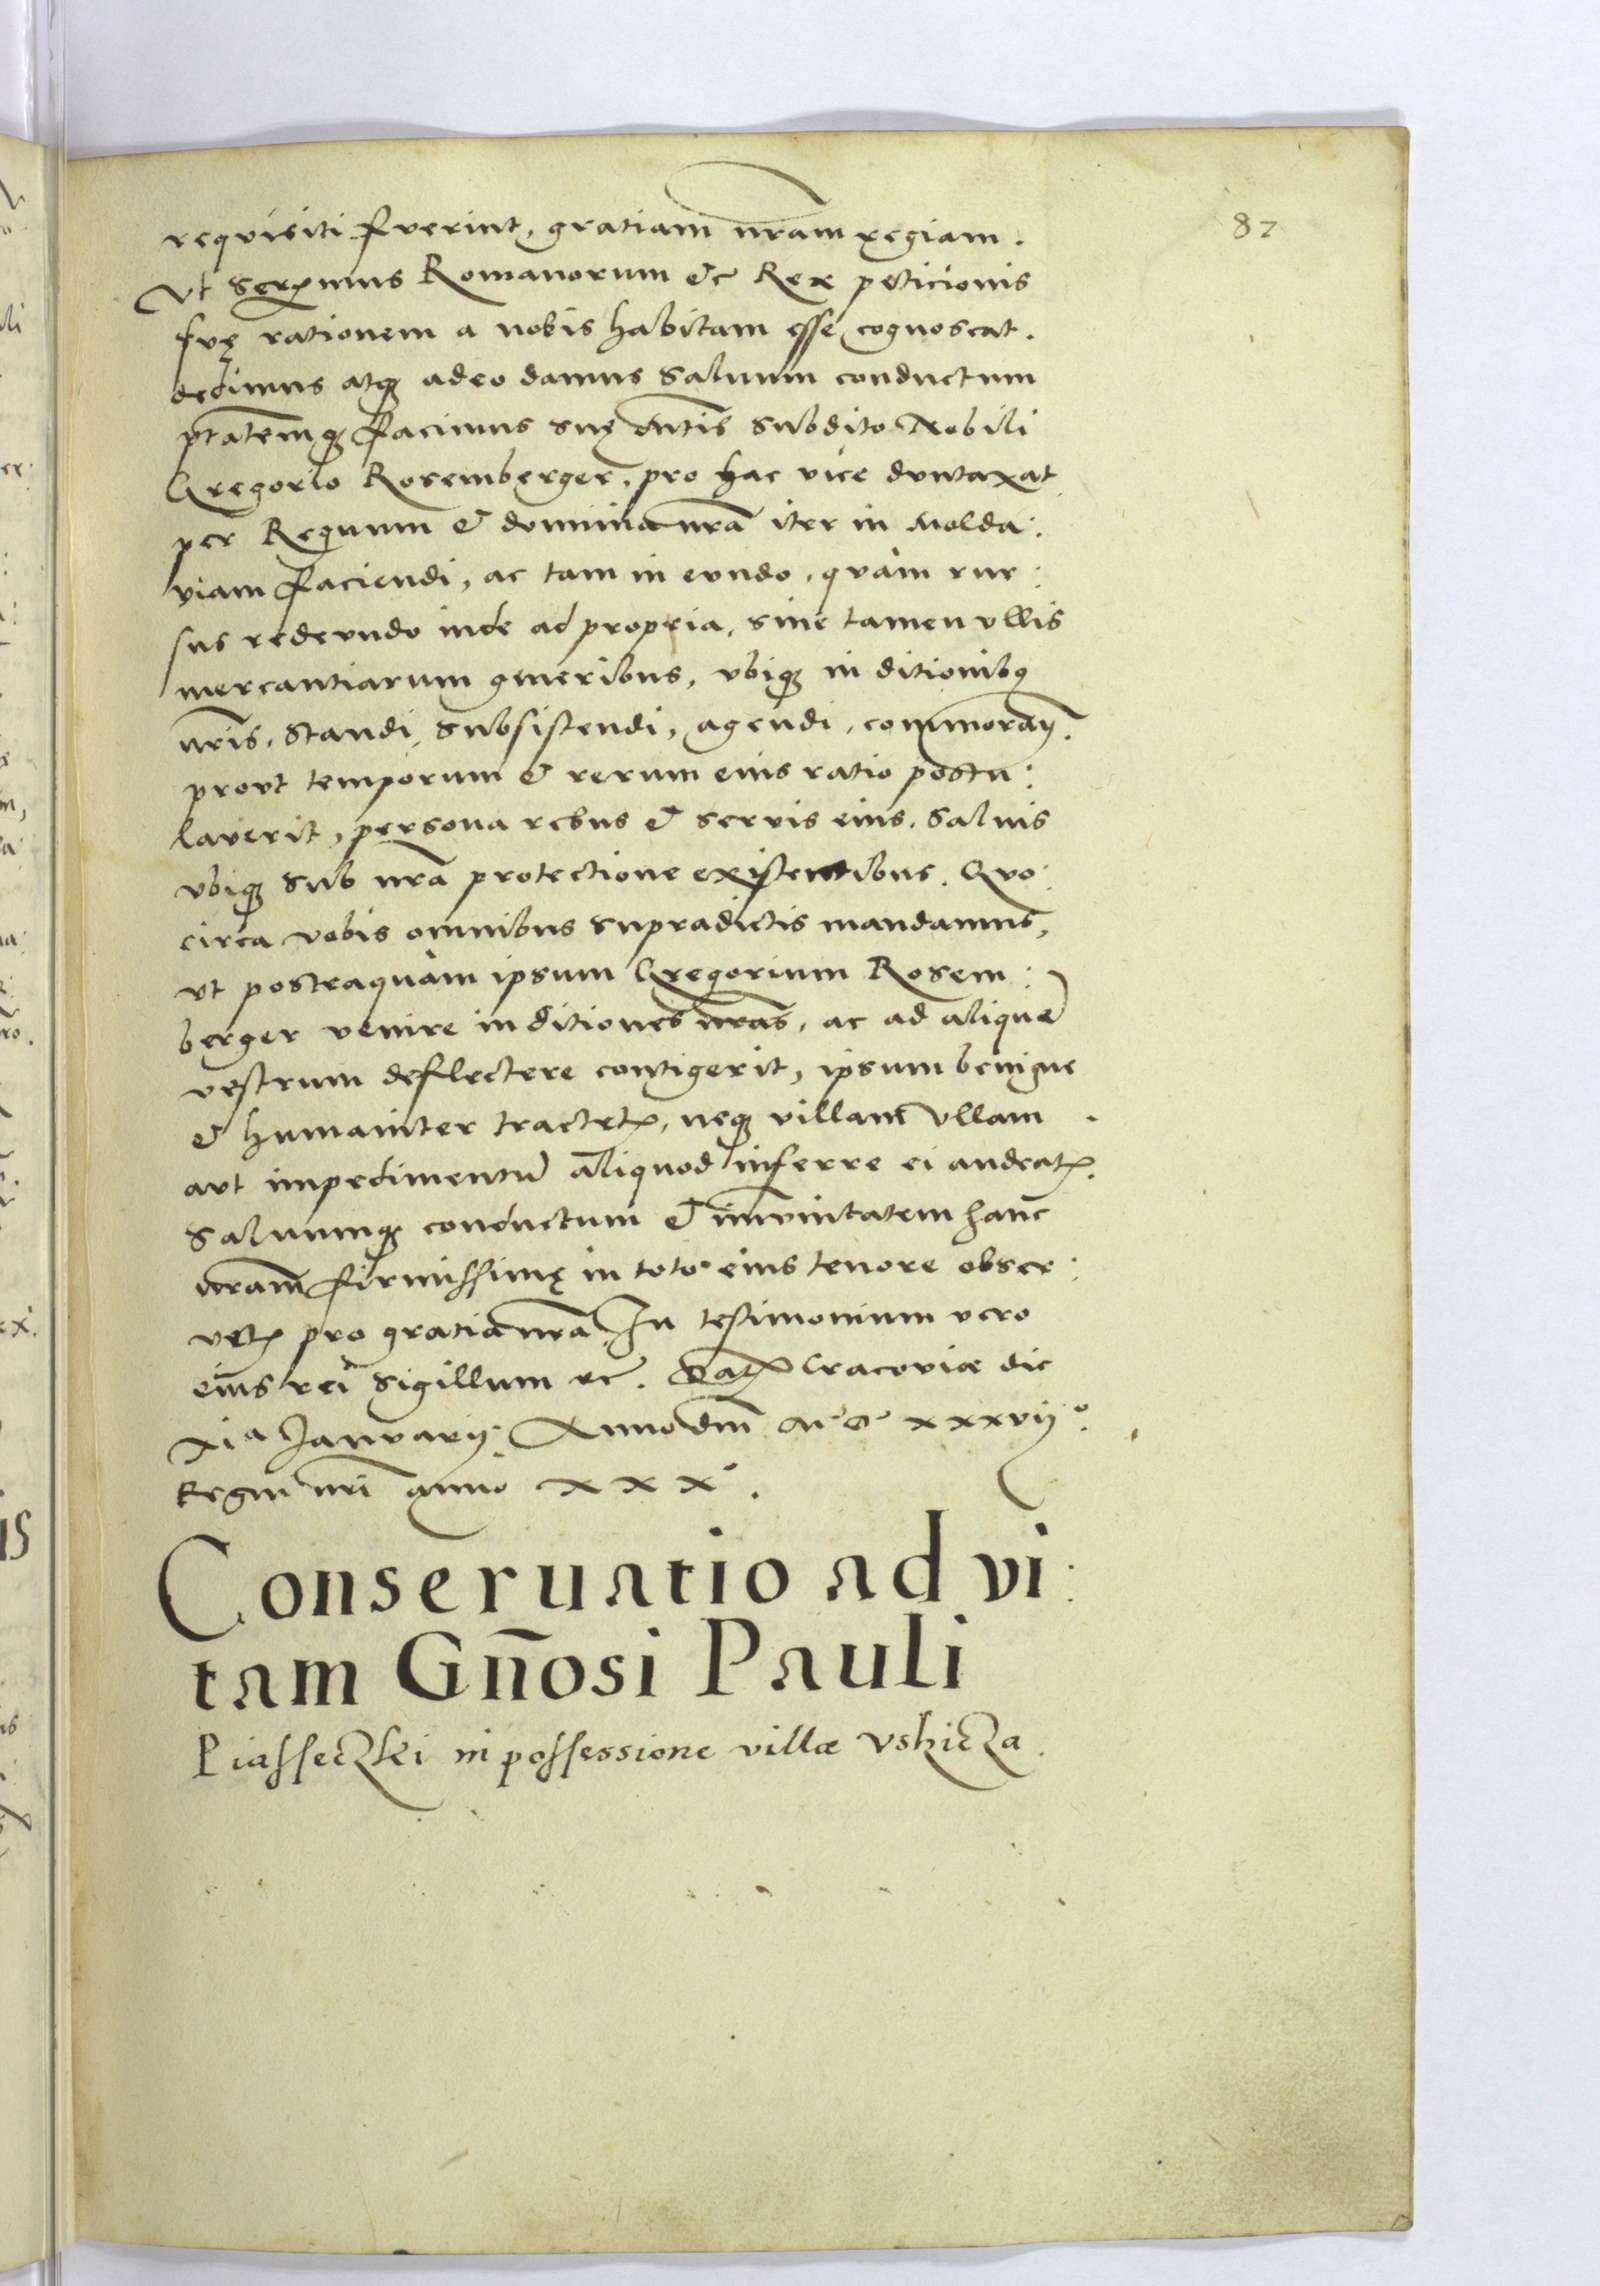 87
requisiti fuerint, gratiam nr̄am regiam.
Vt Serenmus Romanorum &c Rex peticionis
suę rationem a nobis habitam esse cognoscat.
dedimus atq3 adeo damus Saluum conductum
ptatemq3 facimus suę Mtis Subdito Nobili
Gregorio Rosemberger, pro hac vice duntaxat
per Regnum & dominia nr̄a iter in Molda:
viam faciendi, ac tam in eundo, quàm rur:
sus redeundo inde ad propria, sine tamen vllis
mercantiarum generibus, vbiq3 in ditionibq
nr̄is, Standi, Subsistendi, agendi, commorandi.
prout temporum & rerum eius ratio postu:
laverit, persona rebus & servis eius, Salvis
vbiq3 Sub nr̄a protectione existentibus. Quo:
circa vobis omnibus supradictis mandamus,
vt posteaquàm ipsum Gregorium Rosem:
berger venire in ditiones nr̄as, ac ad aliquē
vestrum deflectere contigerit, ipsum benigne
& humaniter tractetis, neq3 villam vllam
aut impedimentū aliquod inferre ei audeatis.
Saluumq3 conductum & imunitatem hanc
nr̄am firmissimę in toto eius tenore obser:
vetis pro gratia nr̄a. In testimonium vero
eius rei sigillum &c. Datum Cracoviæ die
xia Januarij. Anno dm̄ M D xxxvijo.
Regni nr̄i anno xxxo.
Conseruatio ad vi:
tam Gn̄osi Pauli
Piasseczkei in possessione villæ Vshicza.